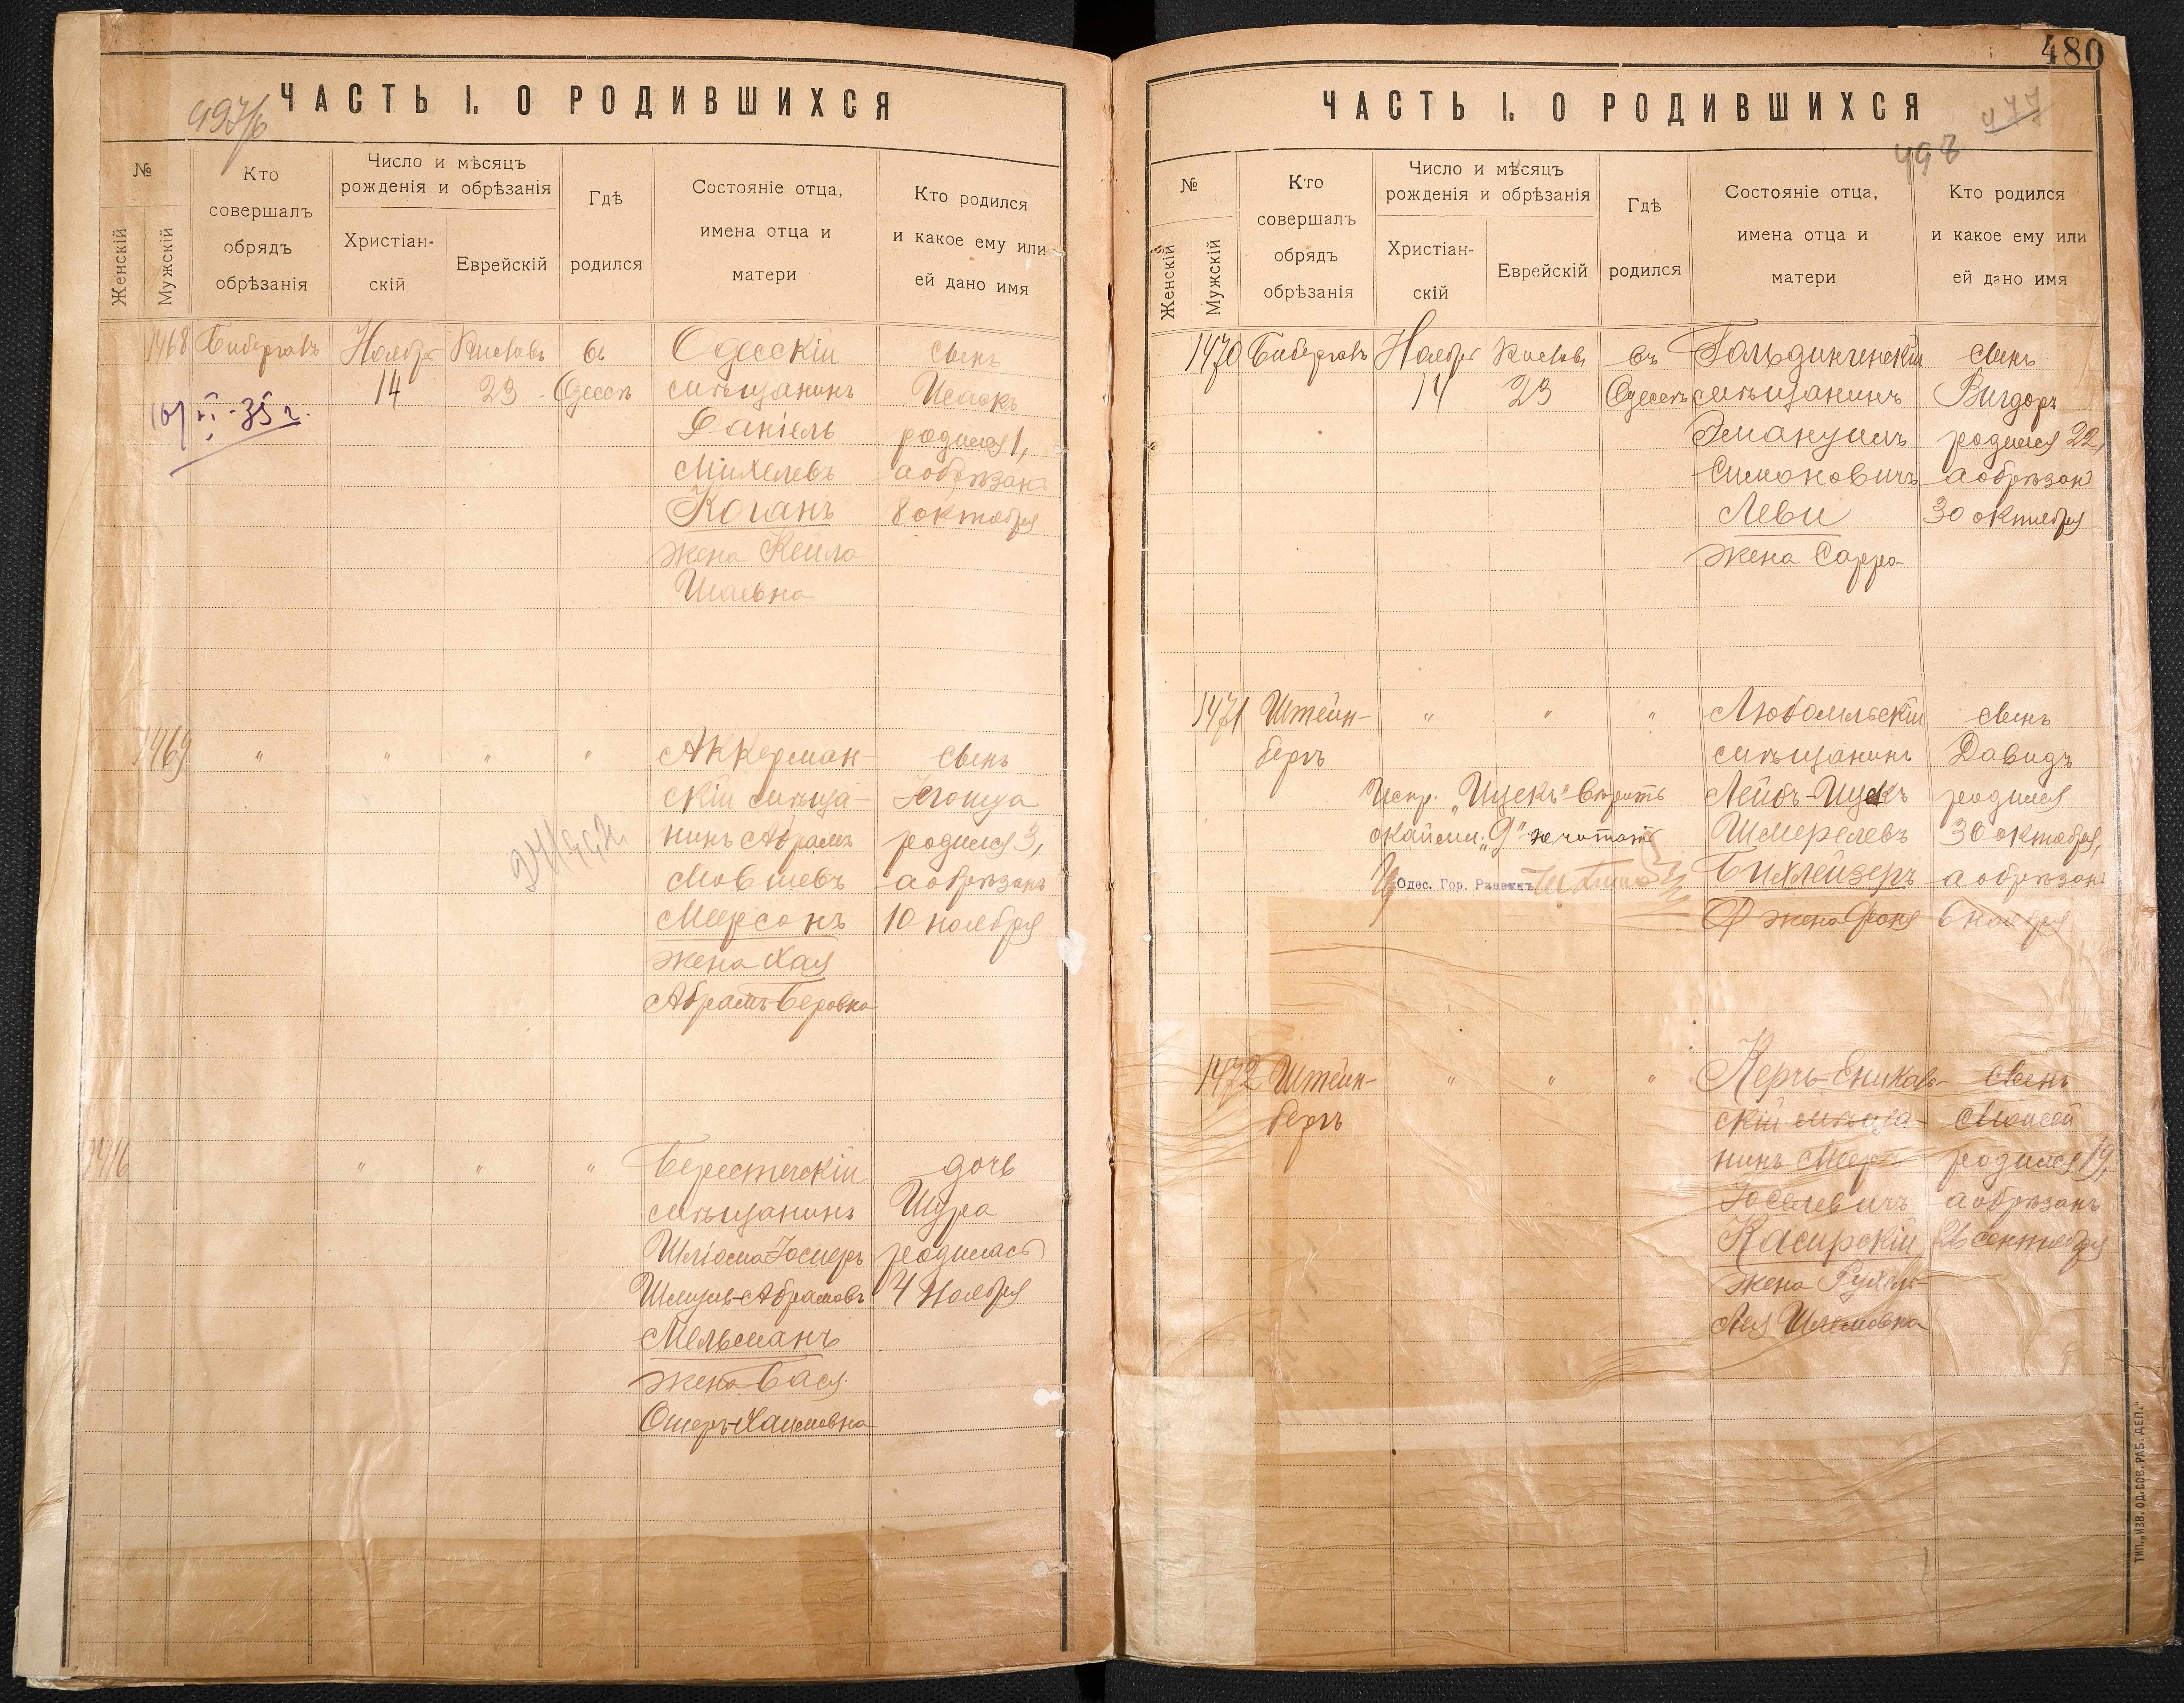 ЧАСТЬ I. О РОДИВШИХСЯ
497/б
№
Женскій
Мужскій
Кто
совершалъ
обрядъ
обрѣзанія
Число и мѣсяцъ
рожденія и обрѣзанія
Христіан-
скій
Еврейскій
Гдѣ
родился
Состояніе отца,
имена отца и
матери
Кто родился
и какое ему или
ей дано имя
1468
Бибергалъ
Ноября
14
Кислевъ
23
въ
Одессѣ
Одесскій
мѣщанинъ
Даніель
Михелевъ
Коганъ
жена Кейла
Шаевна
сынъ
Исаакъ
родился 1,
а обрѣзанъ
8 октября
XI-35 г.
1469
"
"
"
"
Аккерман-
скій мѣща-
нинъ Абрамъ
Мовшевъ
Меерсонъ
жена Хая
Абрамъ-Беровна
сынъ
Іегошуа
родился 3,
а обрѣзанъ
10 ноября
"
"
"
Берестечскій
мѣщанинъ
Шліома Іосифъ
Шмуль-Абрамовъ
Мельманъ
жена Бася
Ошеръ-Хаимовна
дочь
Шура
родилась
4 Ноября
480
ЧАСТЬ I. О РОДИВШИХСЯ
477
498
№
Женскій
Мужскій
Кто
совершалъ
обрядъ
обрѣзанія
Число и мѣсяцъ
рожденія и обрѣзанія
Христіан-
скій
Еврейскій
Гдѣ
родился
Состояніе отца,
имена отца и
матери
Кто родился
и какое ему или
ей дано имя
1470
Бибергалъ
Ноября
14
Кислевъ
23
въ
Одессѣ
Гольдингенскій
мѣщанинъ
Эмануилъ
Симоновичъ
Леви
жена Сарра
сынъ
Вигдоръ
родился 22,
а обрѣзанъ
30 октября
1471
Штейн-
бергъ
"
"
"
Любомльскій
мѣщанинъ
Лейбъ-Ицекъ
Шмерелевъ
Бихлейзеръ
жена Фаня
сынъ
Давидъ
родился
30 октября,
а обрѣзанъ
6 ноября
Испр. „Ицекъ" вѣрить
"Я" не читать
Одес. Гор. Раввинъ
1472
Штейн-
бергъ
"
"
"
Керчь-Еникаль-
скій мѣща-
нинъ Мееръ
Іоселевичъ
Касирскій
жена Рухель-
Лея Шлемовна
сынъ
Моисей
родился 19,
а обрѣзанъ
26 сентября
ТИП. „ИЗВ. ОД. СОВ. РАБ. ДЕП."